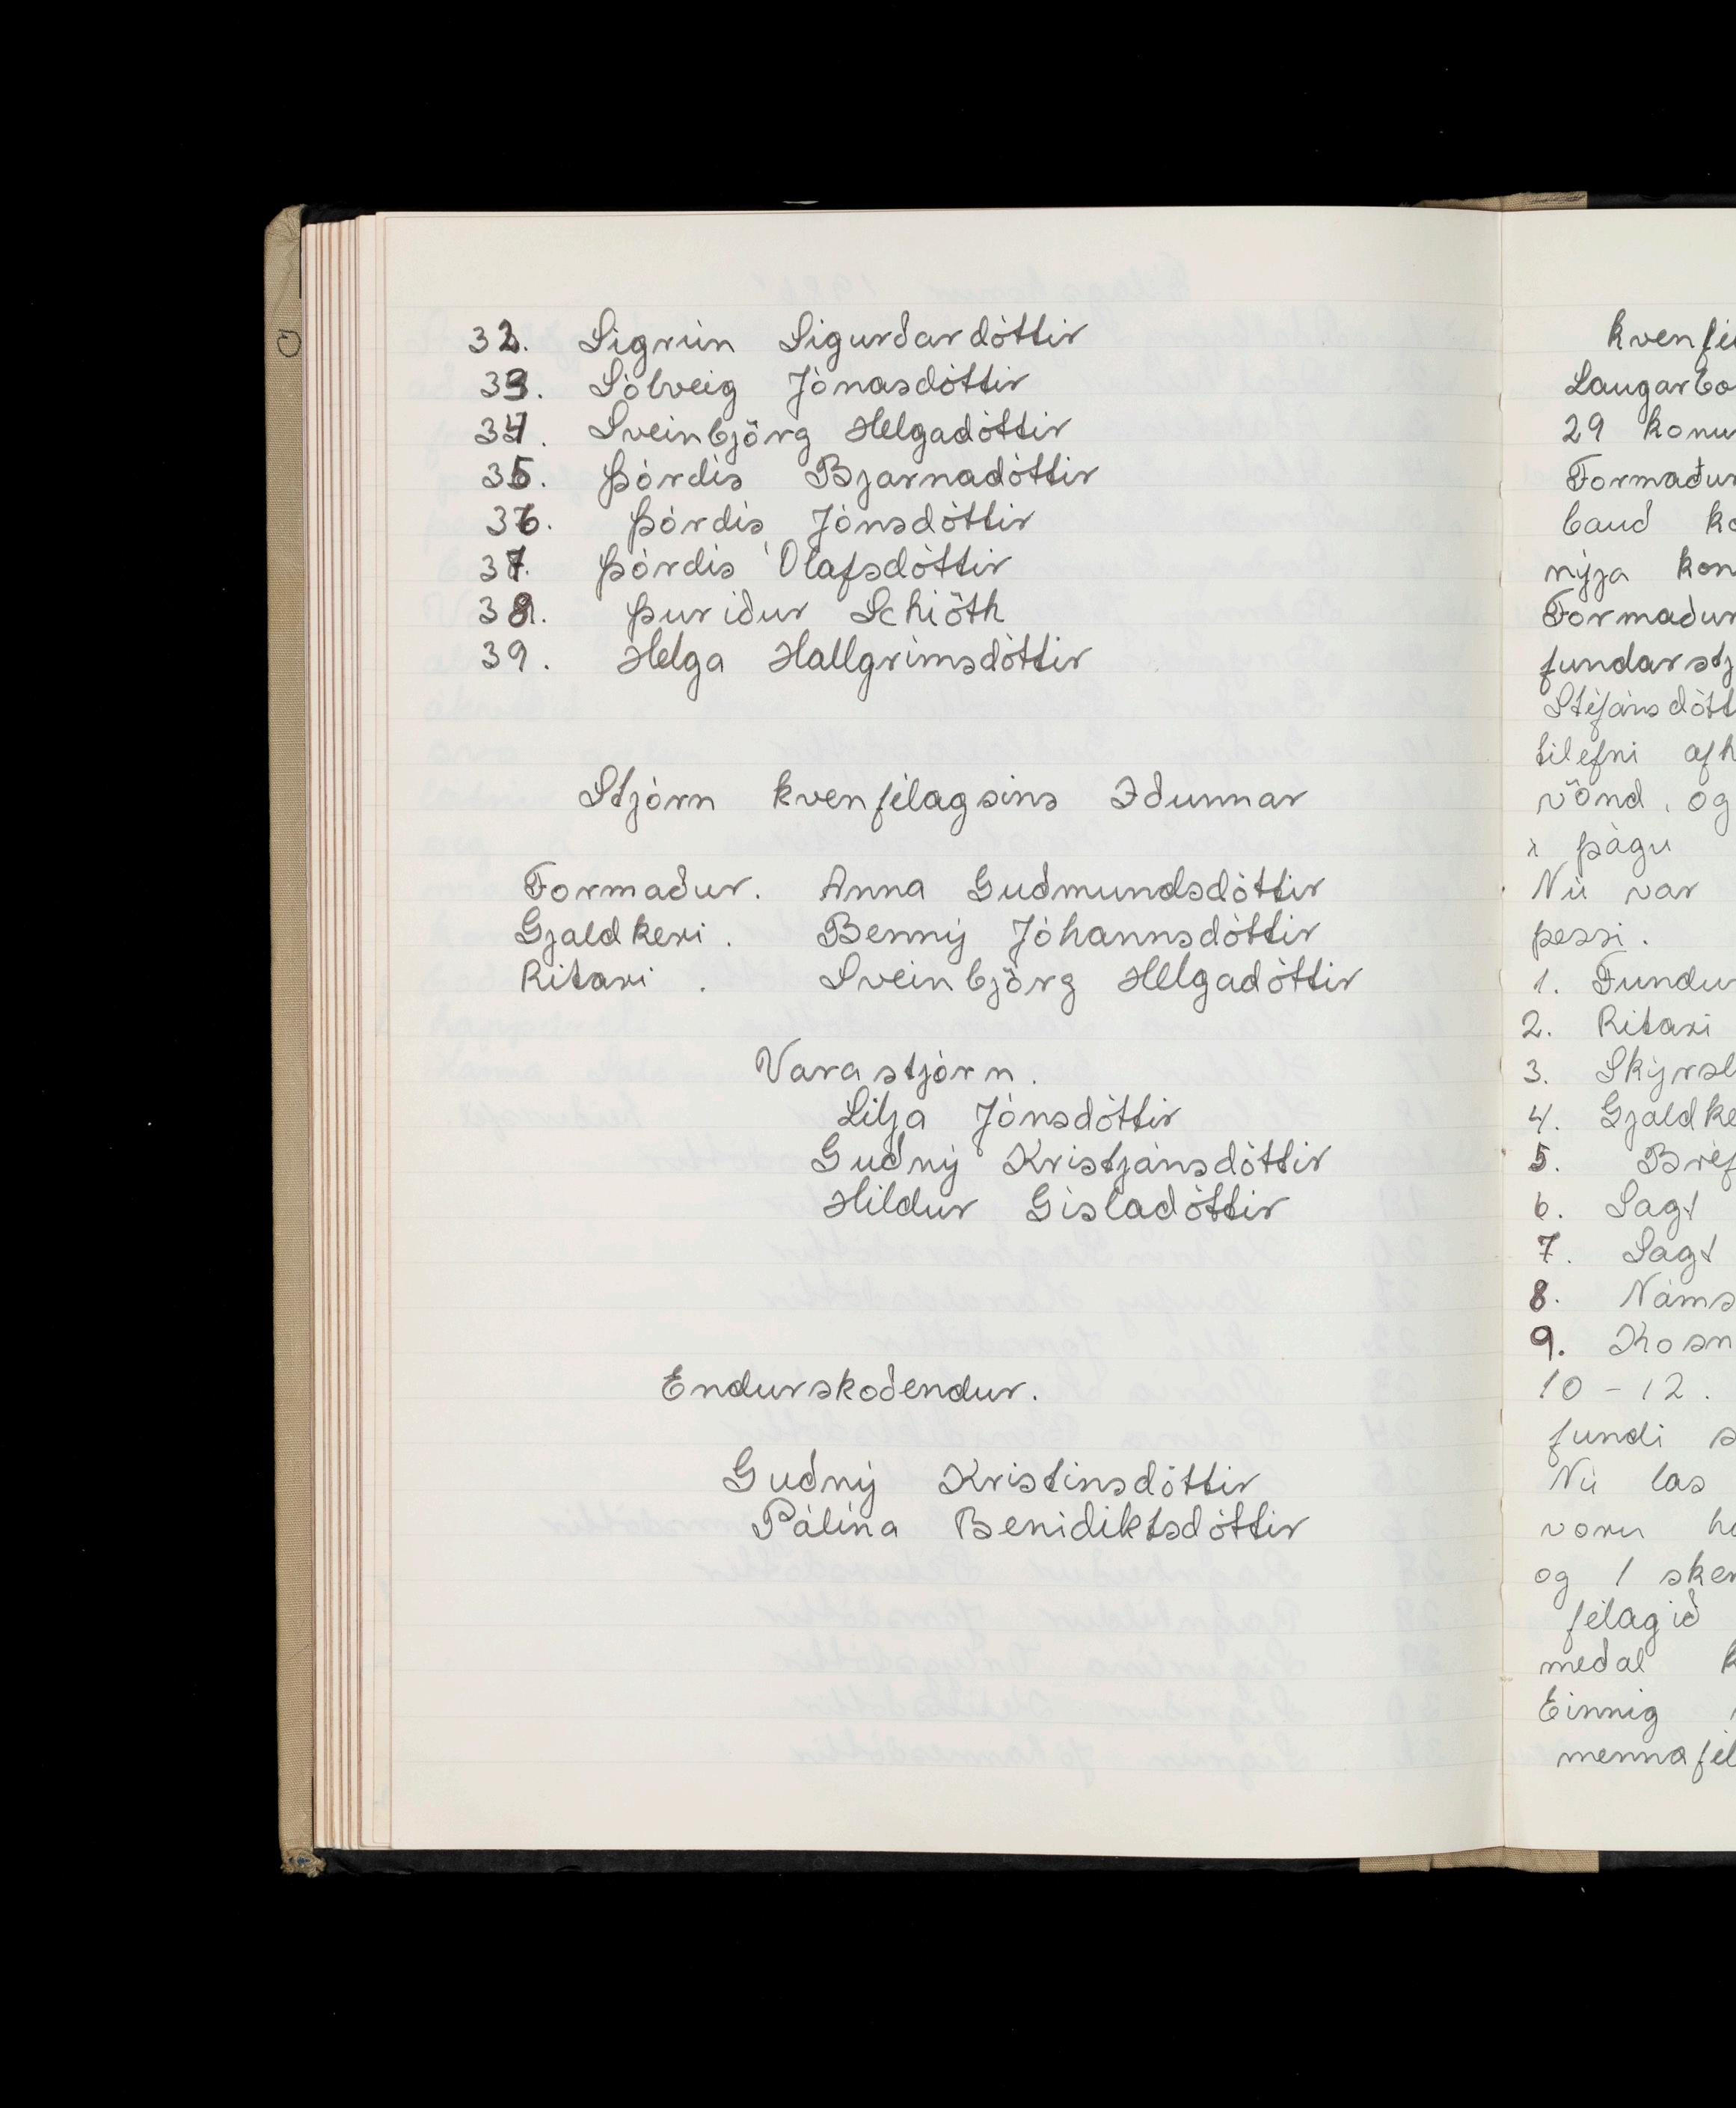 32. Sigrún Sigurðardóttir
33. Sólveig Jónasdóttir
34. Sveinbjörg Helgadóttir
35. Þórdís Bjarnadóttir
36. Þórdís Jónsdóttir
37. Þórdís Ólafsdóttir
38. Þuríður Schiöth
39. Helga Hallgrímsdóttir
Stjórn kvenfélagsins Iðunnar
Formaður. Anna Guðmundsdóttir
Gjaldkeri. Benný Jóhannsdóttir
Ritari. Sveinbjörg Helgadóttir
Varastjórn.
Lilja Jónsdóttir
Guðný Kristjánsdóttir
Hildur Gísladóttir
Endurskoðendur.
Guðný Kristinsdóttir
Pálína Benidiktsdóttir
29
Formaður
bauð
nýja
Formaður
tilefni
vönd, og
í þágu
Nú var
þessi.
1.
2. Ritari
3.
4.
5.
6. Sagt
7. Sagt
8.
9.
10-12.
fundi
Nú las
voru
og 1
félagið
meðal
Einnig